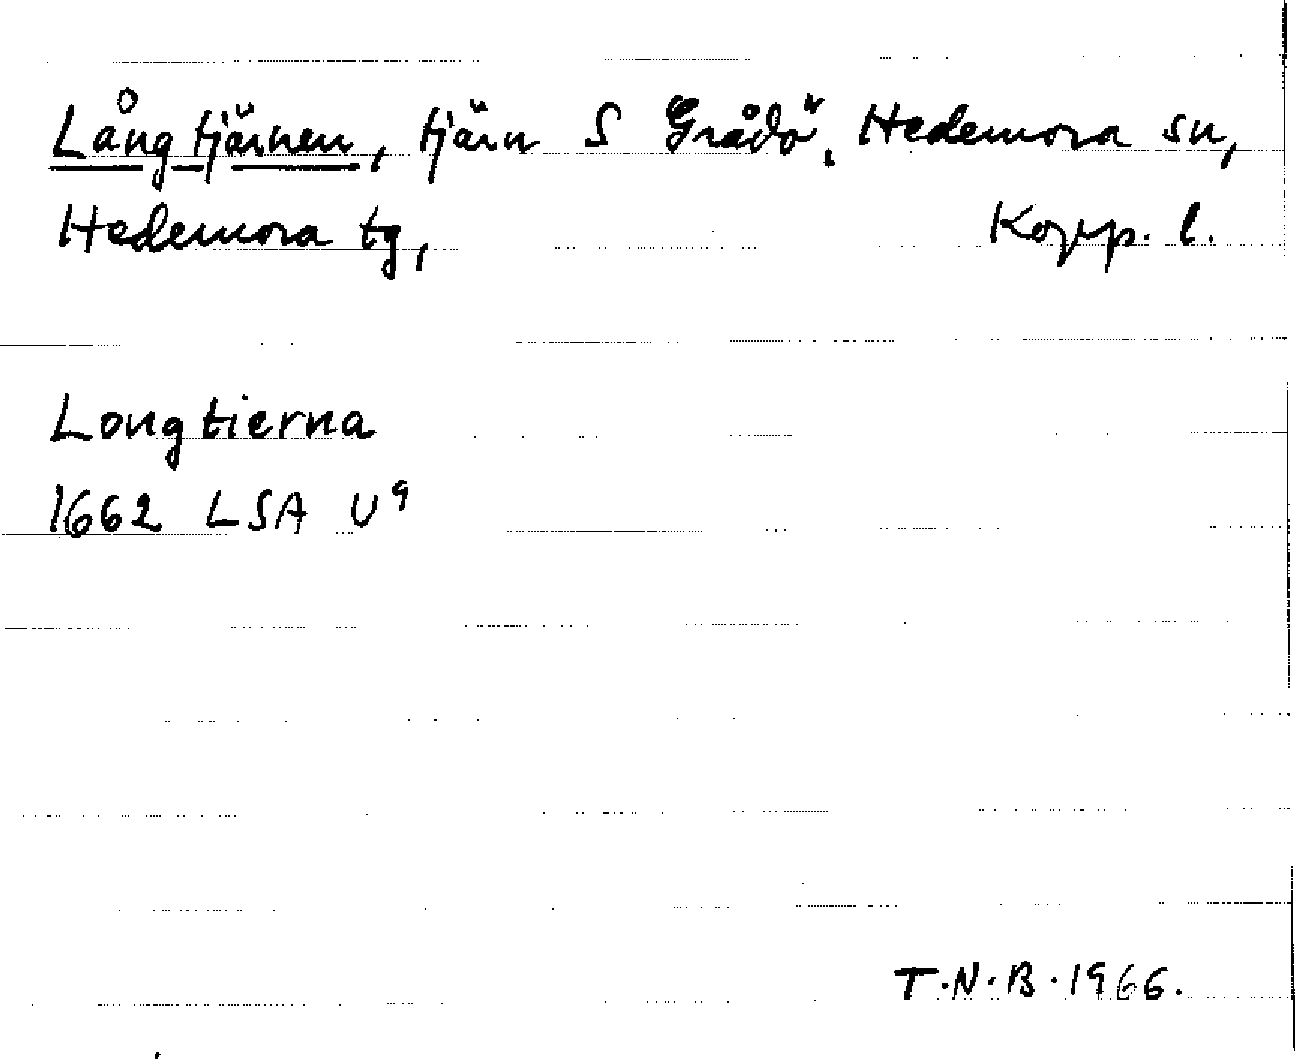 Långtjärnen, tjärn S Grådö, Hedemora sn,
Hedemora tg, Kopp. l.
Longtierna
1662 LSA U⁹
T.N.B. 1966.